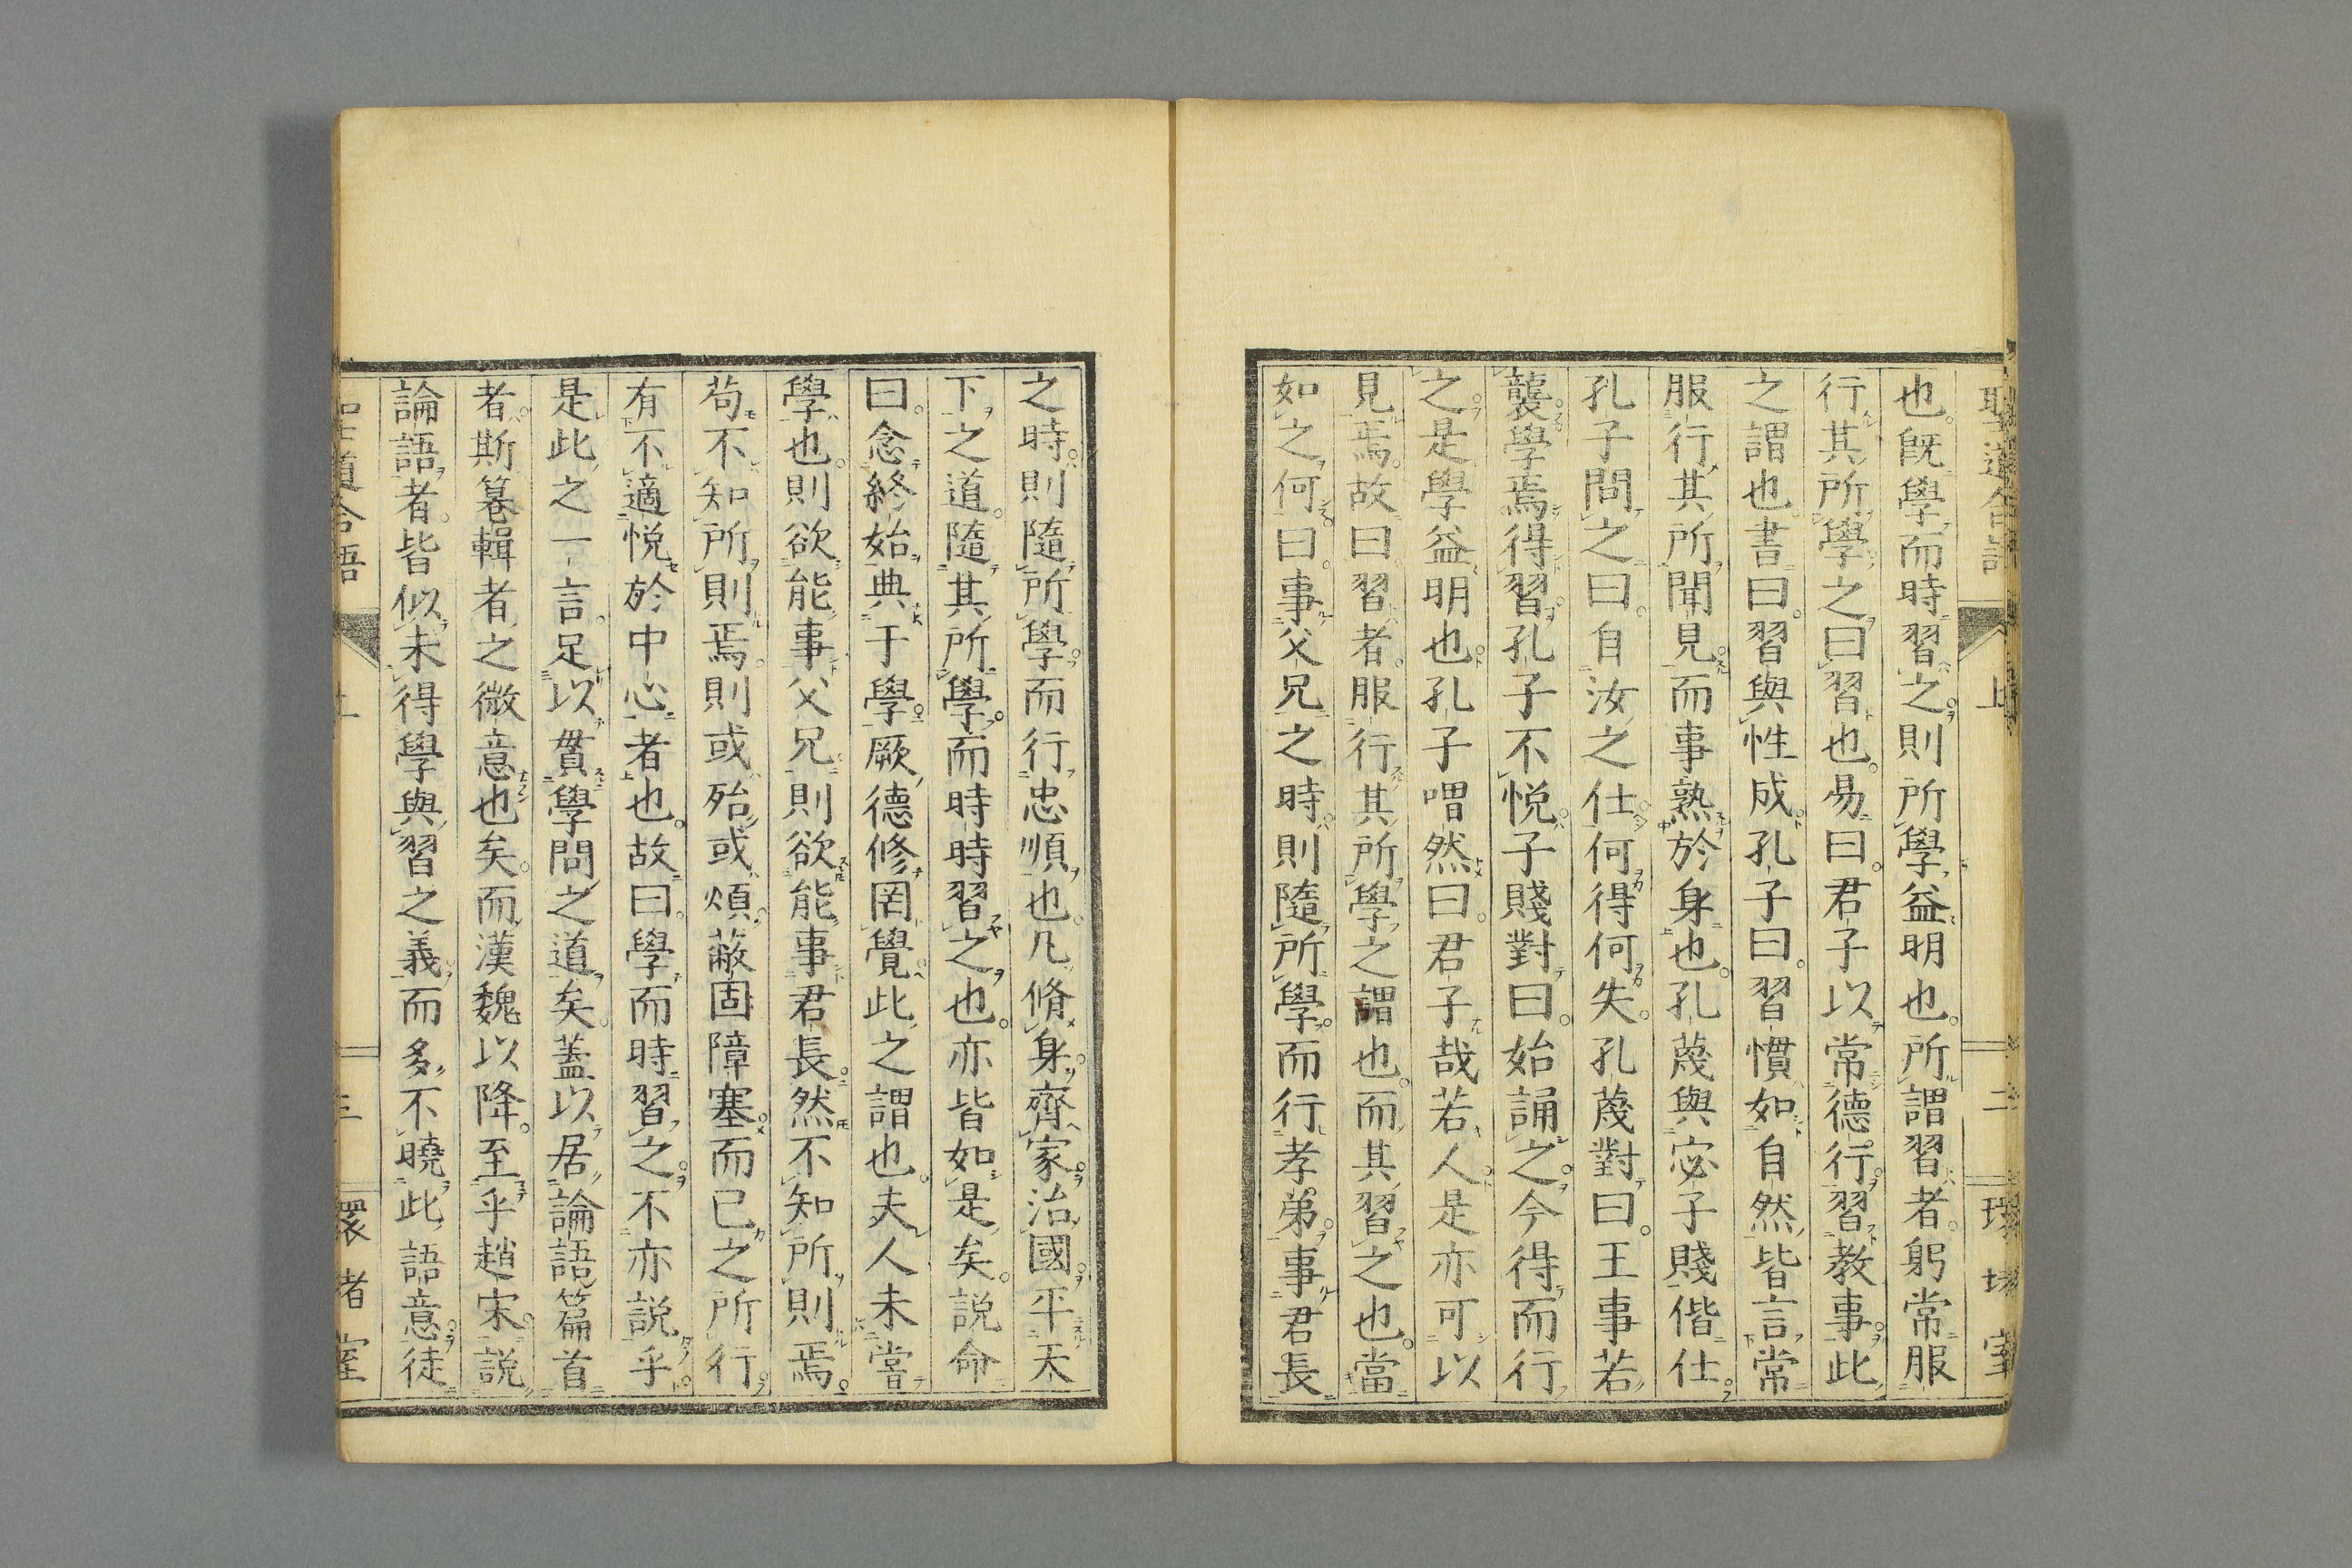 也既學而時習之則所學益明也所謂習者躬常服
行其所學之曰習也易曰君子以常德行習教事此
之謂也書曰習與性成孔子曰習慣如自然皆言常
服行其所聞見而事熟於身也孔蔑與宓子賤偕仕
孔子問之曰自汝之仕何得何失孔蔑對曰王事若
襲學焉得習孔子不悅子賤對曰始誦之今得而行
之是學益明也孔子喟然曰君子哉若人是亦可以
見焉故曰習者服行其所學之謂也而其習之也當
如之何曰事父兄之時則隨所學而行孝弟事君長
之時則隨所學而行忠順也凡脩身齊家治國平天
下之道隨其所學而時時習之也亦皆如是矣說命
曰念終始典于學厥德修罔覺此之謂也夫人未嘗
學也則欲能事父兄則欲能事君長然不知所則焉
苟不知所則焉則或殆或煩蔽固障塞而已之所行
有不適悅於中心者也故曰學而時習之不亦說乎
是此之一言足以貫學問之道矣蓋以居論語篇首
者斯篹輯者之微意也矣而漢魏以降至乎趙宋說
論語者皆似未得學與習之義而多不曉此語意徒
道合語
三
環堵室